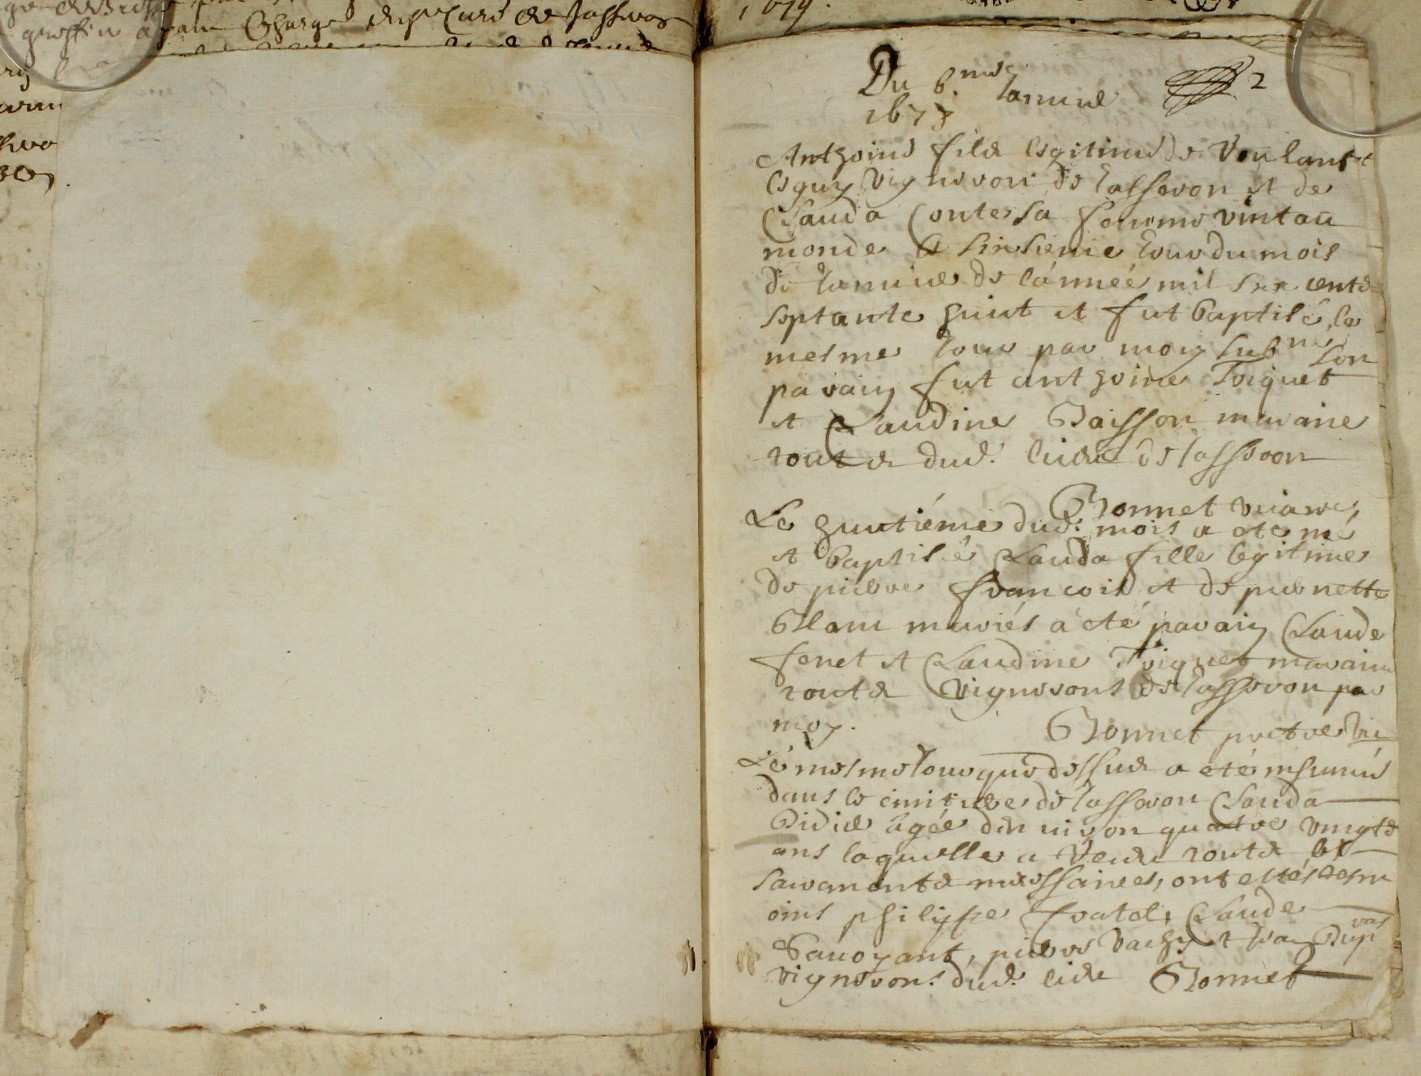 Du 6.me Janvier 2
1678
Anthoine fils legitime de
leguy vigneron de Jasseron et de
Clauda Conte sa femme vint au
monde le sixsieme jour du mois
de Janvier de l'année mil six cents
septante huict et fut baptisé le
mesme jour par moy son
parain fut anthoine Piquet
et Claudine Baisson maraine
touts dud. lieu de Jasseron
Bonnet vicaire
Le huictiéme dud. mois a eté né
et baptisé Clauda fille legitime
de pierre françois et de pernette
Blanc mariés a été parain Claude
fenet et Claudine Piquet maraine
touts vignerons de Jasseron par
moy. Bonnet pretre vic
Lé mesme jour que dessus a eté inhumé
dans le cimitiere de Jasseron Clauda
Didier âgée d'environ quatre vingts
ans laquelle a receu touts les
sacrements necessaires, ont estés tesm
oins philippe fratel, Claude
Savoyant, pierre Vachy et
vignerons dud. lieu Bonnet